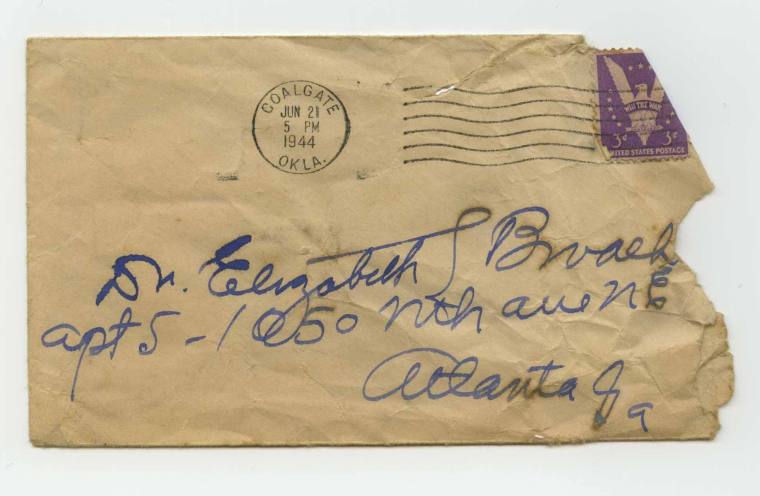 COALGATE
JUN 21
5 PM
1944
OKLA.
WIN THE WAR
3¢ 3¢
UNITED STATES POSTAGE
Dr. Elizabeth S Broach
apt 5 - 1050 nth ave N
Atlanta Ga